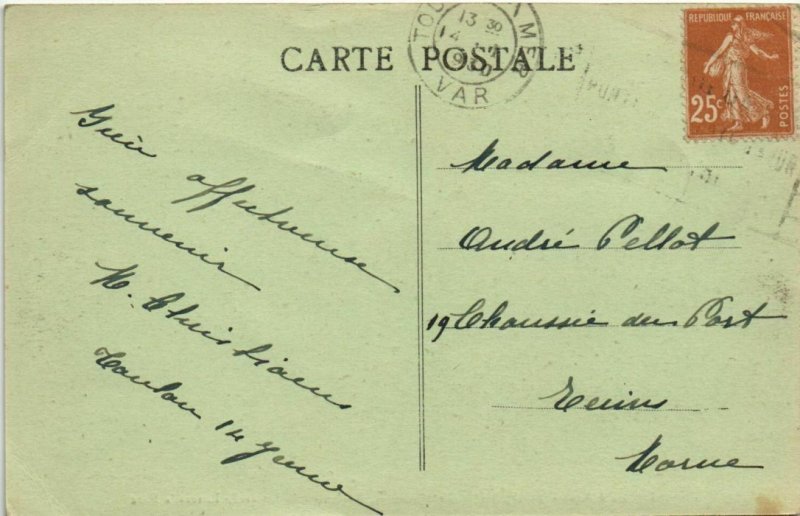 CARTE POSTALE
TOU
13 30
14
1930
VAR
REPUBLIQUE FRANÇAISE
25c
POSTES
affectueux
souvenir
M. Christiaens
Toulon 14
Madame
André Pellot
19 Chaussée du Port
Reims
Marne